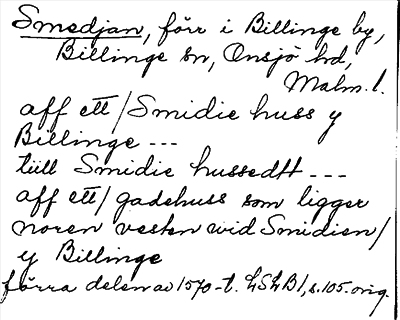 Smedjan, förr i Billinge by,
Billinge sn, Onsjö hd,
Malm. l.
aff ett / Smidie huss y
Billinge ---
till Smidie hussedtt ---
aff ett / gadehuss som ligger
noren vesten wid Smidien /
y Billinge
förra delen av 1570-t. LSLB1, s. 105. orig.